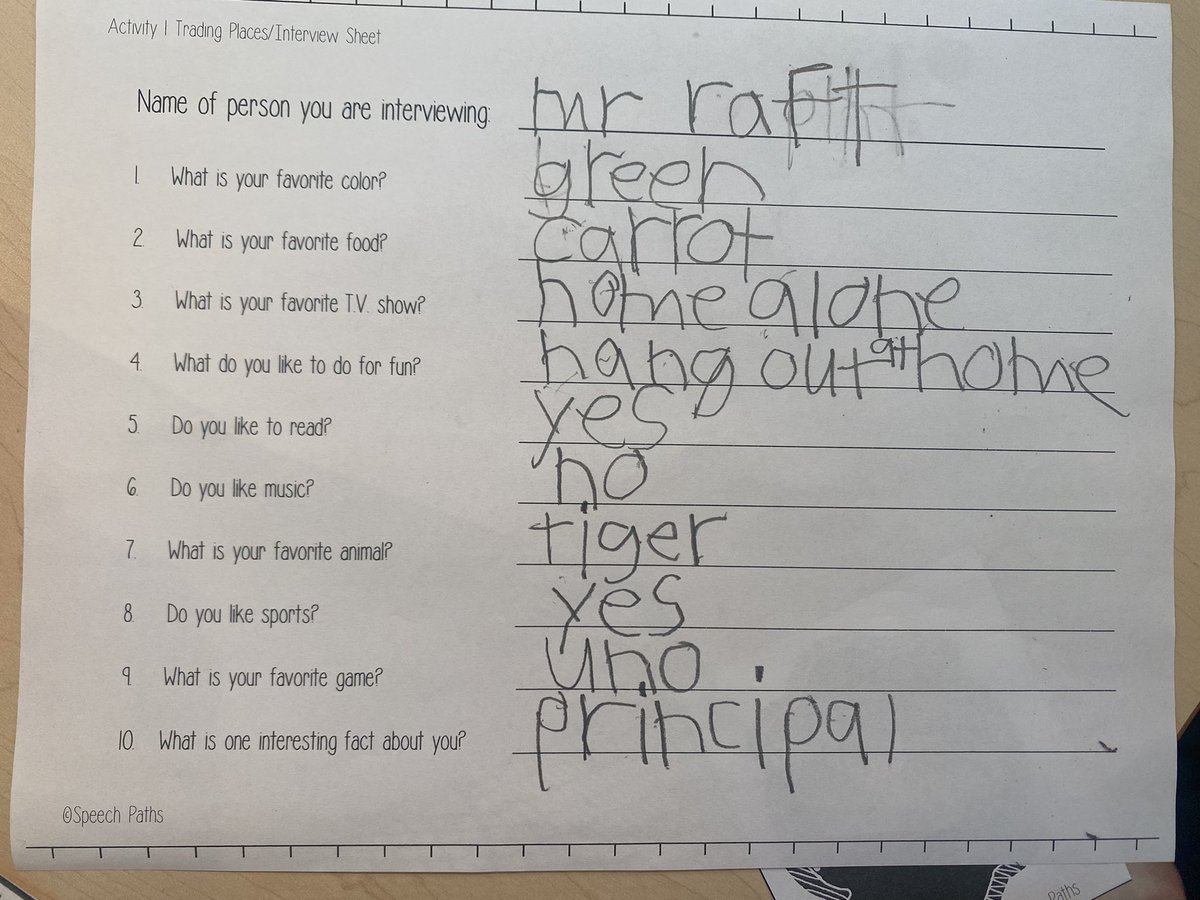 Activity 1 Trading Places/Interview Sheet
Name of person you are interviewing: mr rafft
1. What is your favorite color? green
2. What is your favorite food? carrot
3. What is your favorite T.V. show? home alone
4. What do you like to do for fun? hang out at home
5. Do you like to read? yes
6. Do you like music? no
7. What is your favorite animal? tiger
8. Do you like sports? yes
9. What is your favorite game? uno
10. What is one interesting fact about you? principal
©Speech Paths
Paths